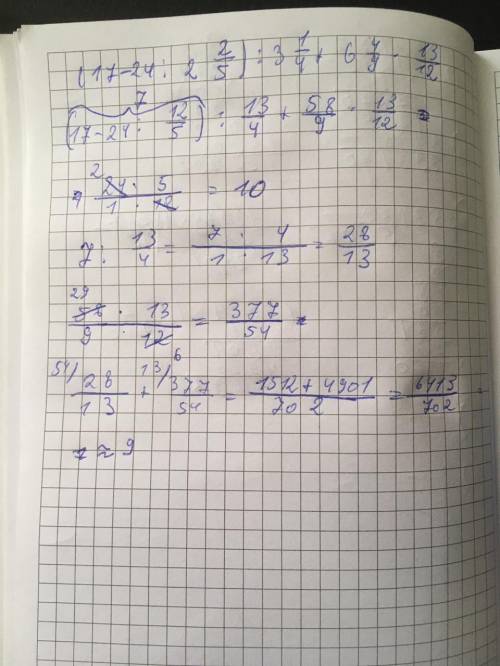 (17-24 : 2 2/5) : 3 1/4 + 6 4/9 · 13/12
7
(17-24 : 12/5) : 13/4 + 58/9 · 13/12 =
2
= 24 · 5 / 1 · 12 = 10
7 : 13/4 = 7 · 4 / 1 · 13 = 28/13
29
58 · 13 / 9 · 12 = 377/54 =
6
54) 28/13 + 13) 377/54 = 1512 + 4901 / 702 = 6413/702 =
≈ 9